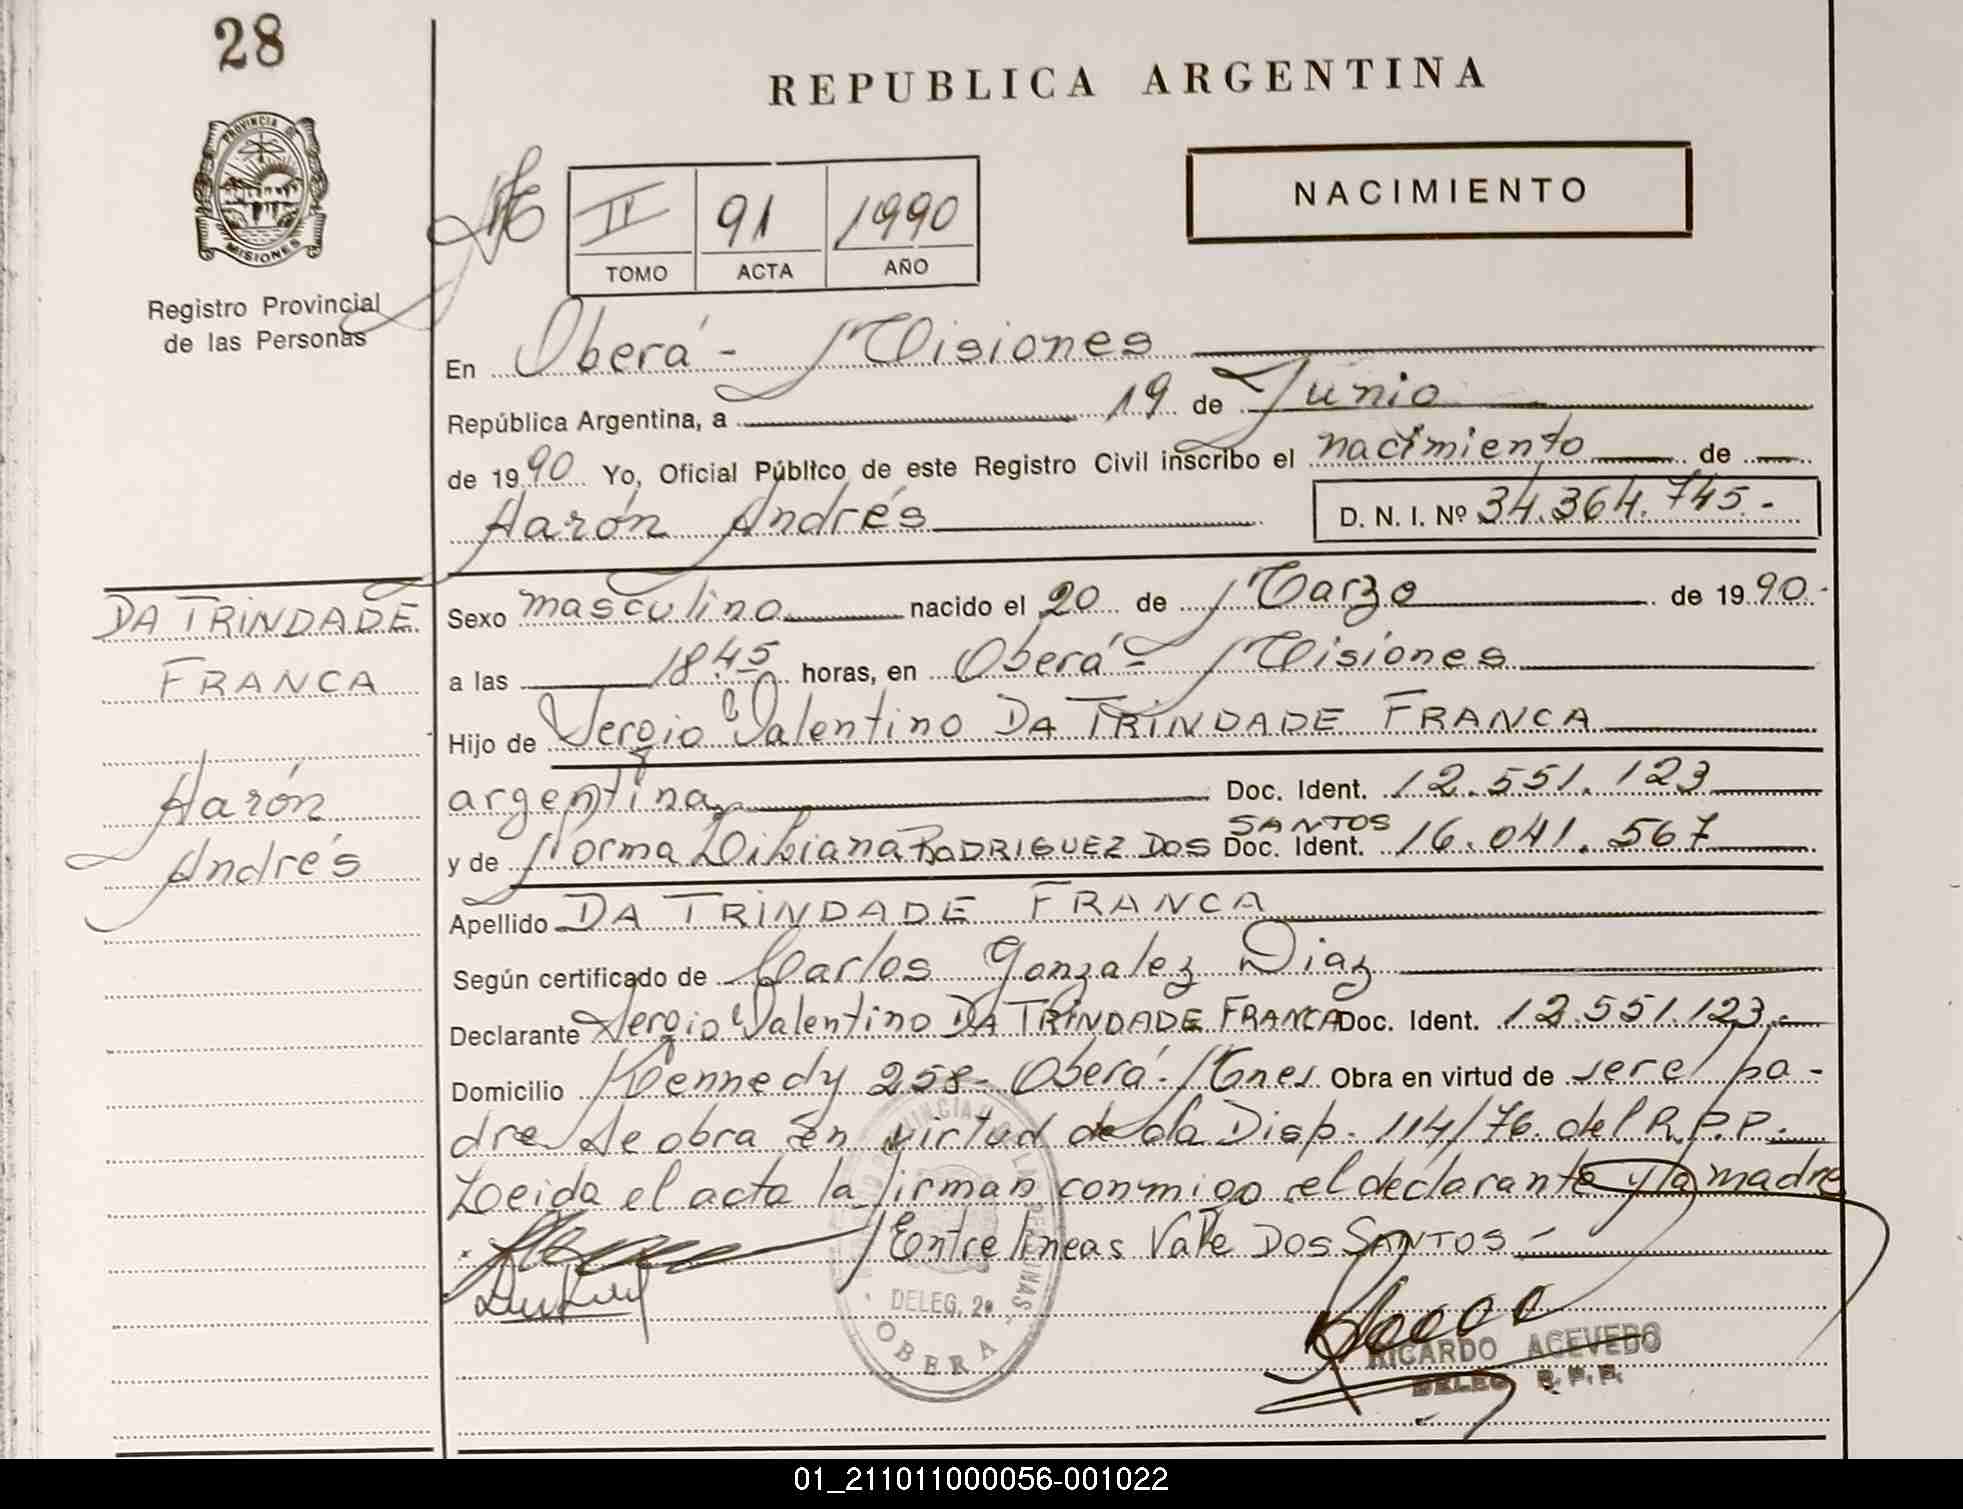 28
REPUBLICA ARGENTINA
PROVINCIA DE
MISIONES
Registro Provincial
de las Personas
II 91 1990
TOMO ACTA AÑO
NACIMIENTO
En Oberá - Misiones
República Argentina, a 19 de Junio
de 1990 Yo, Oficial Público de este Registro Civil inscribo el nacimiento de
Aarón Andrés D. N. I. Nº 34.364.745.-
DA TRINDADE
FRANCA
Aarón
Andrés
Sexo masculino nacido el 20 de Marzo de 1990.-
a las 18.45 horas, en Oberá - Misiones
Hijo de Sergio Valentino DA TRINDADE FRANCA
argentina Doc. Ident. 12.551.123
SANTOS
y de Norma Bibiana RODRIGUEZ DOS Doc. Ident. 16.041.567
Apellido DA TRINDADE FRANCA
Según certificado de Carlos Gonzalez Diaz
Declarante Sergio Valentino DA TRINDADE FRANCA Doc. Ident. 12.551.123.-
Domicilio Kennedy 258- Oberá - Mnes. Obra en virtud de ser el pa-
dre Se obra en virtud de la Disp. 114/76. del R.P.P.
Leida el acta la firman conmigo el declarante y la madre
Entre lineas Vale DOS SANTOS -
DELEG. 2a
OBERA
RICARDO ACEVEDO
DELEG R.P.P.
01_211011000056-001022